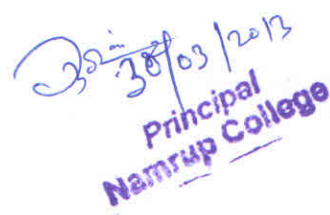 30/03/2013
Principal
Namrup College